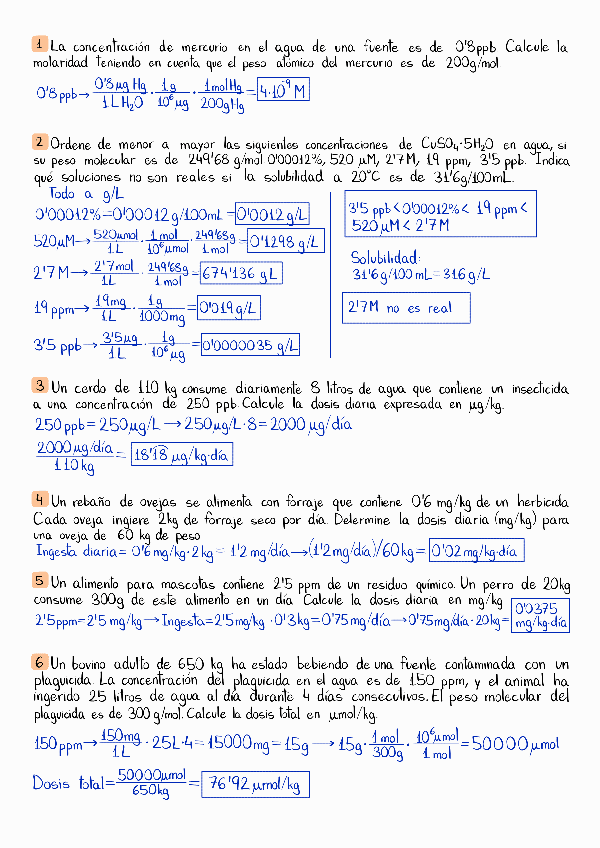 1 La concentración de mercurio en el agua de una fuente es de 0'8ppb Calcule la
molaridad teniendo en cuenta que el peso atómico del mercurio es de 200g/mol
0'8 ppb → 0'8 μg Hg / 1 L H₂O · 1g / 10⁶ μg · 1 mol Hg / 200g Hg = 4·10⁻⁹ M
2 Ordene de menor a mayor las siguientes concentraciones de CuSO₄·5H₂O en agua, si
su peso molecular es de 249'68 g/mol 0'00012%, 520 μM, 2'7 M, 19 ppm, 3'5 ppb. Indica
qué soluciones no son reales si la solubilidad a 20°C es de 31'6g/100mL.
Todo a g/L
0'00012% = 0'00012 g/100mL = 0'0012 g/L
520μM → 520μmol / 1L · 1 mol / 10⁶ μmol · 249'68g / 1 mol = 0'1298 g/L
2'7 M → 2'7mol / 1L · 249'68g / 1 mol = 674'136 g L
19 ppm → 19mg / 1L · 1g / 1000mg = 0'019 g/L
3'5 ppb → 3'5μg / 1L · 1g / 10⁶ μg = 0'0000035 g/L
3'5 ppb < 0'00012% < 19 ppm <
520 μM < 2'7 M
Solubilidad:
31'6 g/100 mL = 316 g/L
2'7M no es real
3 Un cerdo de 110 kg consume diariamente 8 litros de agua que contiene un insecticida
a una concentración de 250 ppb. Calcule la dosis diaria expresada en μg/kg.
250 ppb = 250 μg/L → 250 μg/L · 8 = 2000 μg/día
2000 μg/día / 110 kg = 18'18 μg/kg·día
4 Un rebaño de ovejas se alimenta con forraje que contiene 0'6 mg/kg de un herbicida
Cada oveja ingiere 2kg de forraje seco por día. Determine la dosis diaria (mg/kg) para
una oveja de 60 kg de peso
Ingesta diaria = 0'6 mg/kg · 2 kg = 1'2 mg/día → (1'2 mg/día)/60 kg = 0'02 mg/kg·día
5 Un alimento para mascotas contiene 2'5 ppm de un residuo químico. Un perro de 20kg
consume 300g de este alimento en un día Calcule la dosis diaria en mg/kg
2'5ppm = 2'5 mg/kg → Ingesta = 2'5mg/kg · 0'3 kg = 0'75 mg/día → 0'75mg/día · 20kg = 0'0375 mg/kg·día
6 Un bovino adulto de 650 kg ha estado bebiendo de una fuente contaminada con un
plaguicida. La concentración del plaguicida en el agua es de 150 ppm, y el animal ha
ingerido 25 litros de agua al día durante 4 días consecutivos. El peso molecular del
plaguicida es de 300 g/mol. Calcule la dosis total en μmol/kg.
150 ppm → 150mg / 1L · 25L · 4 = 15000 mg = 15g → 15g · 1 mol / 300g · 10⁶ μmol / 1 mol = 50000 μmol
Dosis total = 50000μmol / 650kg = 76'92 μmol/kg